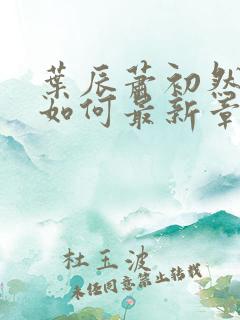 葉辰蕭初然
如何最新章
杜玉波
未经同意禁止转载